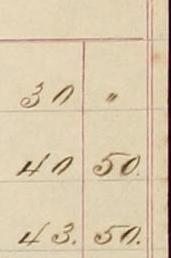 30 "
40 50.
43. 50.